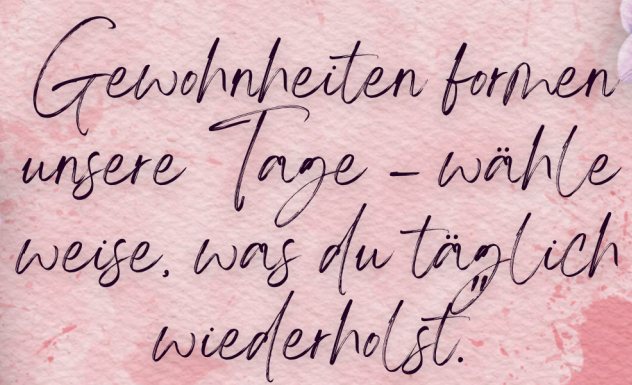 Gewohnheiten formen
unsere Tage – wähle
weise, was du täglich
wiederholst.